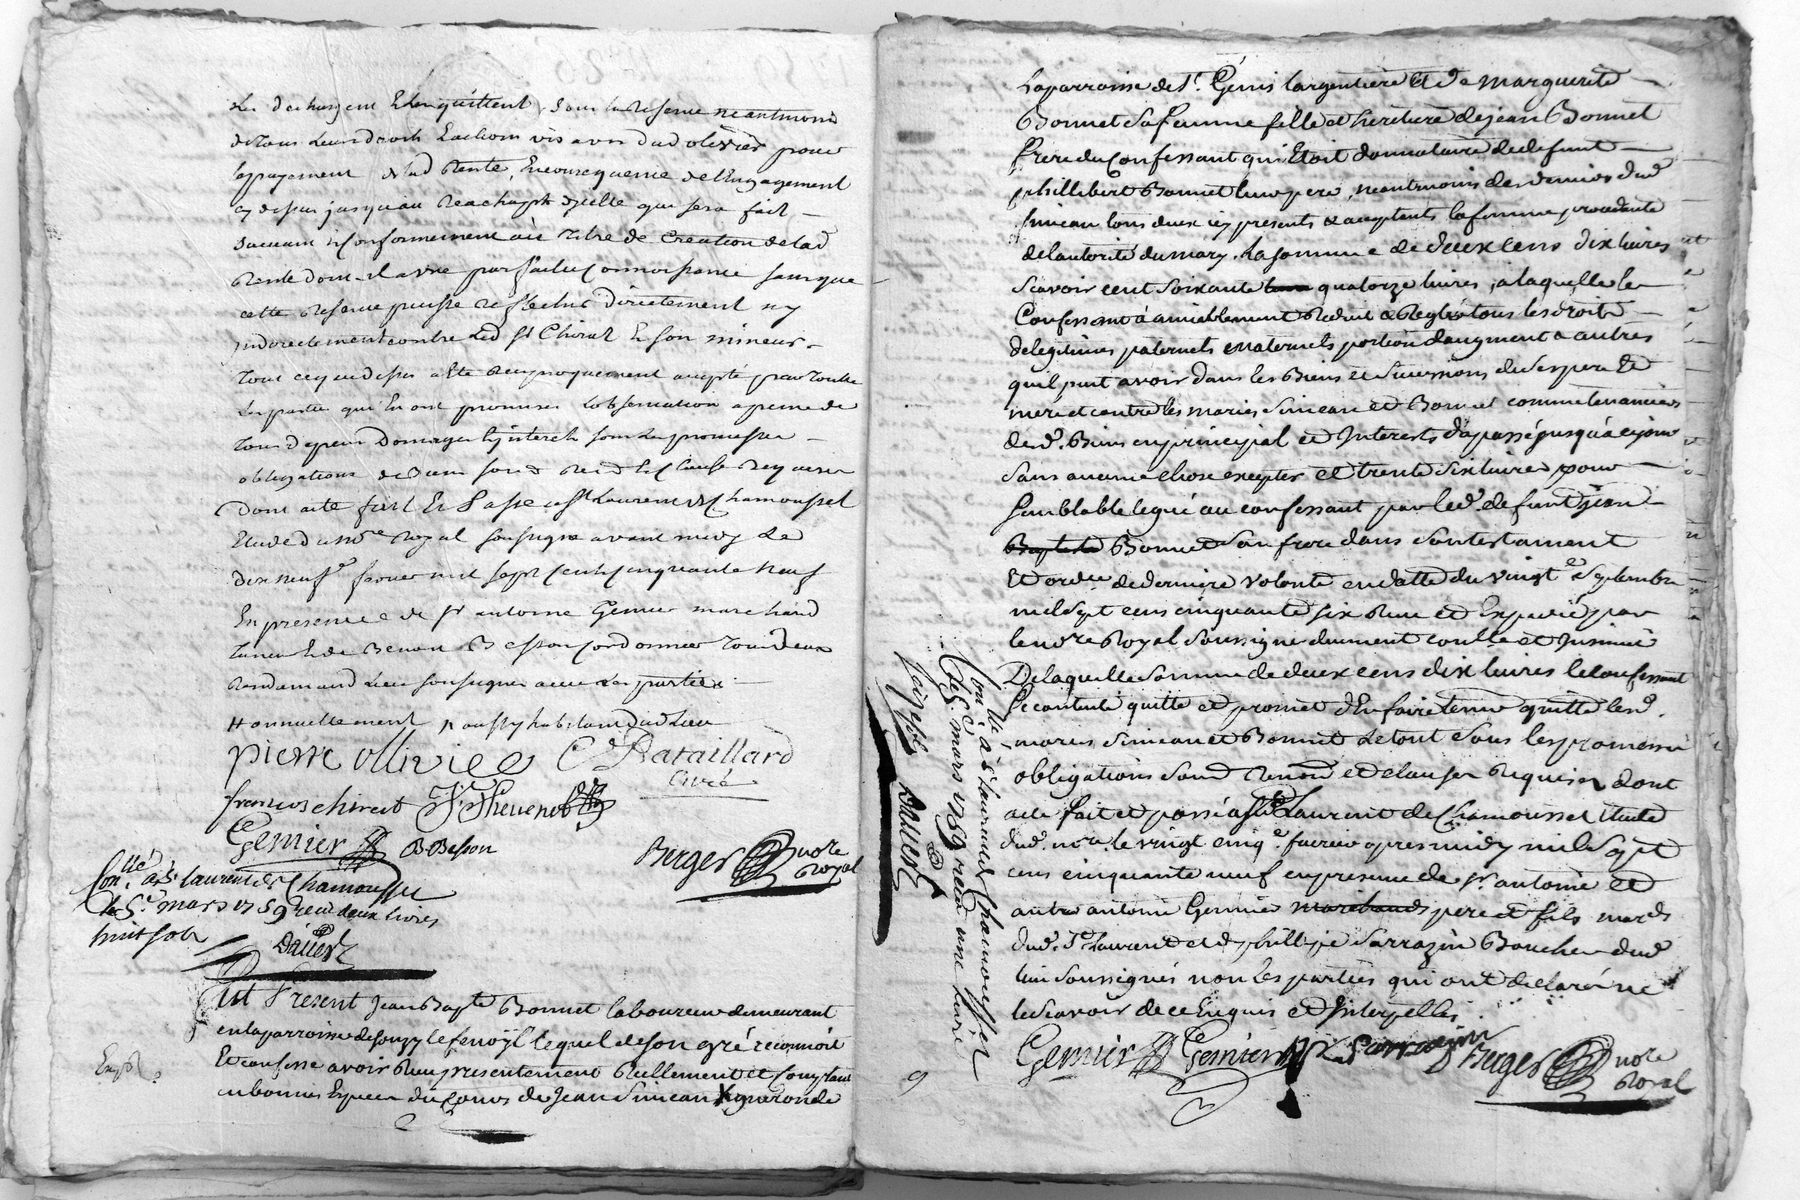 Les dechargent & en quittent, sous la Reserve neantmoins
de tous leurs droits & actions vis avis dud olivier pour
le payement de lad Rente, En consequence de l'Engagement
cy dessus jusquau Reachapt dycelle que sera fait
suivant & conformement au titre de Creation de lad
Rente dont il a une parfaite Connoissance sans que
cette Reserve puisse refflechir directement ny
indirectement contre led Sr Chirat & son mineur.
tout cequi dessus a Eté Reciproquement accepté par toutes
les parties qui En ont promises lobservation a peine de
tous depens Domages & jnterets sous les promesses
obligations de Biens soumis Renon & Clauses Requises
Dont acte fait Et Passé a St Laurent de Chamousset
Etude du nore Royal soussigné avant midy Le
Dix neufe fevrier mil sept cent cinquante Neuf
En presence de Sr antoine Gemier marchand
taneur & de Benoit Besson cordonnier tous deux
dud Lieu soussignes avec les parties
pierre ollivier C Bataillard
Curé
francois chirat F Thevenot
Gemier B Besson
Berger nore
Royal
Conllé à St laurent de Chamousset
Le 5e mars 1759 reçu deux livres
huit sols
Dauier
Fut Present Jean Bapte Bonnet laboureur demeurant
en la parroisse de souzy le fenoÿl lequel de son gré reconnoit
Et confesse avoir Reçu presentement Réellement et Comptant
en bonnes Especes du Cours de Jean Simean Vigneron de
Expé
la parroisse de St. Génis largentiere Et de marguerite
Bonnet sa femme fille et heritiere de jean Bonnet
frere du Confessant qui Etoit donnataire de defunt
phillibert Bonnet leur pere, neantmoins des deniers dud
simean tous deux icy presents & acceptants la femme procedante
de lautorité du mary, La somme de deux cens dix livres
scavoir cent soixante quatorze livres, a laquelle le
Confessant a amiablement Reduit & Reglé tous les droits
de legitimes paternels maternels portion daugment & autres
quil peut avoir dans les Biens et Successions de ses pere Et
mere et contre les maries Simean et Bonnet comme tenanciers
desd. Biens en principal et Interets du passé jusqu'à ce jour
sans aucune chose excepter et trente six livres pour
semblable legué au confessant par led. defunt jean
Bonnet son frere dans son testament
Et ordce de derniere volonté en datte du vingte Septembre
mil sept cens cinquante six Reçu et Expedié par
le nore Royal Soussigné duement conllé et Insinué
De laquelle somme de deux cens dix livres le confessant
se contente quitte et promet d'En faire tenir quitte lesd.
maries Simean et Bonnet Le tout sous les promesses
obligations soum Renon et clauses Requises dont
acte fait et passé a St Laurent de Chamousset Etude
dud. nore. le vingt cinqe. fevrier apres midy mil sept
cens cinquante neuf en presence de Sr. antoine et
autre antoine Gemier pere et fils mards
dud. St Laurent et de phillipe Sarrazin Boucher dud
lieu soussignés non les parties qui ont declaré ne
le scavoir de ce Enquis et Interpellés.
Gemier Gemier Sarrazin Berger nore
Royal
Conllé à St Laurent de Chamousset
Le 5e mars 1759 reçu une livre
Dauier
9